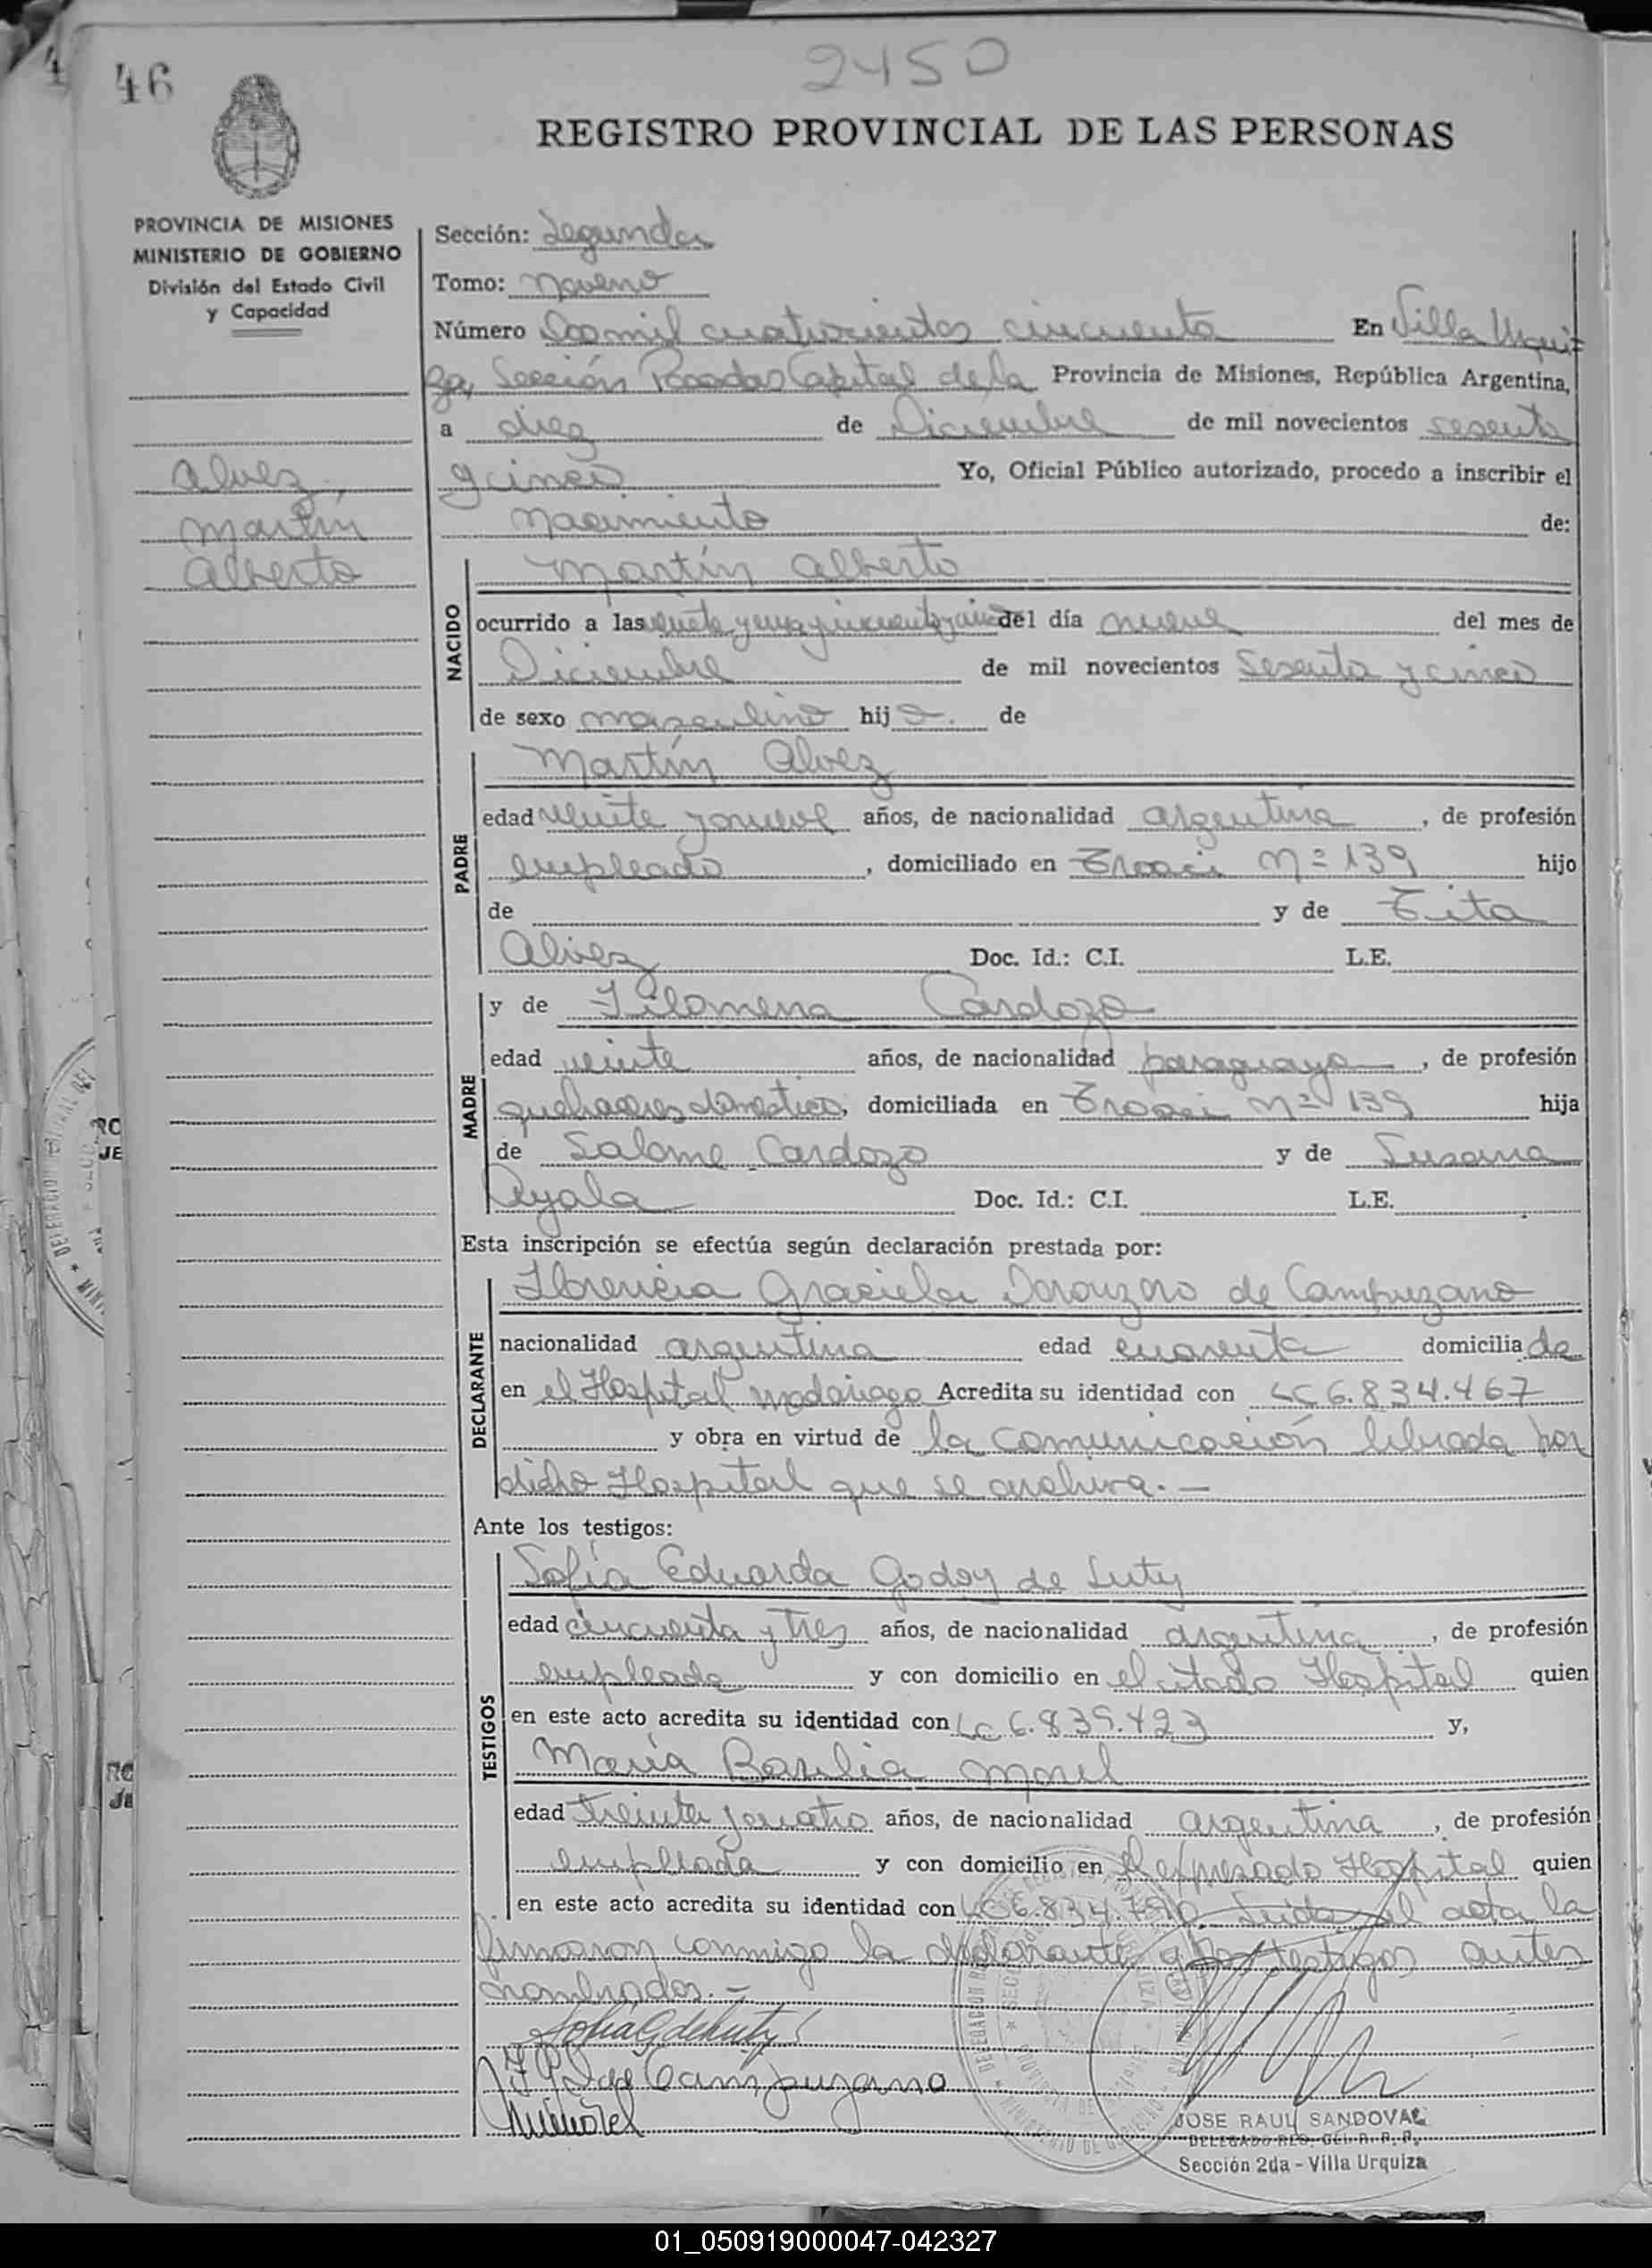 46
2450
REGISTRO PROVINCIAL DE LAS PERSONAS
PROVINCIA DE MISIONES
MINISTERIO DE GOBIERNO
División del Estado Civil
y Capacidad
Alvez,
Martín
Alberto
Sección: Segunda
Tomo: Noveno
Número Dosmil cuatrocientos cincuenta En Villa Urqui
za, Sección Posadas Capital de la Provincia de Misiones, República Argentina,
a diez de Diciembre de mil novecientos sesenta
y cinco Yo, Oficial Público autorizado, procedo a inscribir el
nacimiento de:
NACIDO
Martín Alberto
ocurrido a las del día nueve del mes de
Diciembre de mil novecientos sesenta y cinco
de sexo masculino hijo. de
PADRE
Martín Alvez
edad veinte y nueve años, de nacionalidad argentina, de profesión
empleado, domiciliado en Nº 139 hijo
de y de Tita
Alvez Doc. Id.: C.I. L.E.
MADRE
y de Filomena Cardozo
edad veinte años, de nacionalidad paraguaya, de profesión
quehaceres domésticos, domiciliada en Nº 139 hija
de Salome Cardozo y de Susana
Ayala Doc. Id.: C.I. L.E.
Esta inscripción se efectúa según declaración prestada por:
DECLARANTE
Florencia Graciela de Campuzano
nacionalidad argentina edad cuarenta domiciliada
en el Hospital Madariaga Acredita su identidad con LC 6.834.467
y obra en virtud de la comunicación librada por
dicho Hospital que se archiva.-
Ante los testigos:
TESTIGOS
Sofía Eduarda Godoy de Luty
edad cincuenta y tres años, de nacionalidad argentina, de profesión
empleada y con domicilio en el citado Hospital quien
en este acto acredita su identidad con LC 6.839.423 y,
María Basilia Morel
edad treinta y cuatro años, de nacionalidad argentina, de profesión
empleada y con domicilio en el expresado Hospital quien
en este acto acredita su identidad con LC 6.834. Leida el acta la
firmaron conmigo la declarante y los testigos antes
nombrados.-
Sofia G de Luty
F G D de Campuzano
JOSE RAUL SANDOVAL
DELEGADO REG. GEL R. P. P.
Sección 2da - Villa Urquiza
01_050919000047-042327